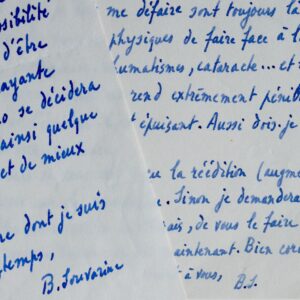 sibilité
d'être
ayante
no se décidera
ainsi quelque
et de mieux
ne dont je suis
gtemps,
B. Souvarine
me défaire sont toujours là
physiques de faire face à l
humatismes, cataracte... et
rend extrêmement pénib
t épuisant. Aussi dois-je
u la réédition (augme
. Sinon je demandera
ais, de vous le faire
aintenant. Bien cor
t à vous,
B.S.